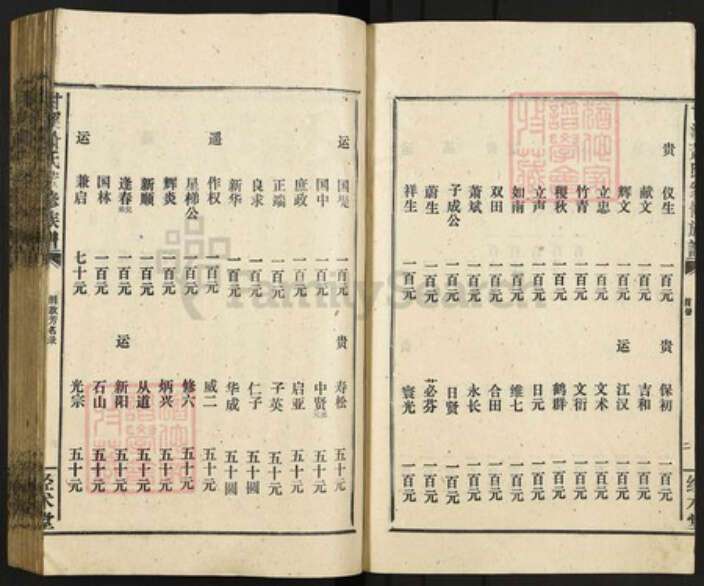 贵 仪生 一百元
献文 一百元
辉文 一百元
立忠 一百元
竹青 一百元
稷秋 一百元
立声 一百元
如南 一百元
双田 一百元
萧斌 一百元
子成公 一百元
蔚生 一百元
祥生 一百元
贵 保初 一百元
吉和 一百元
运 江汉 一百元
文术 一百元
文衍 一百元
鹤群 一百元
日元 一百元
维七 一百元
合田 一百元
永长 一百元
日贤 一百元
必芬 一百元
寰光 一百元
二
运 国 一百元
国中 一百元
庶政 一百元
正端 一百元
良求 一百元
新华 一百元
遥 作权 一百元
星梯公 一百元
辉炎 一百元
新顺 一百元
逢春 一百元
国林 一百元
运 兼启 七十元
贵 寿松 五十元
中贤 五十元
启亚 五十元
子英 五十元
仁子 五十圆
华成 五十圆
威二 五十元
修六 五十元
炳兴 五十元
从道 五十元
运 新阳 五十元
石山 五十元
光宗 五十元
捐款芳名录
经术堂
FamilySearch